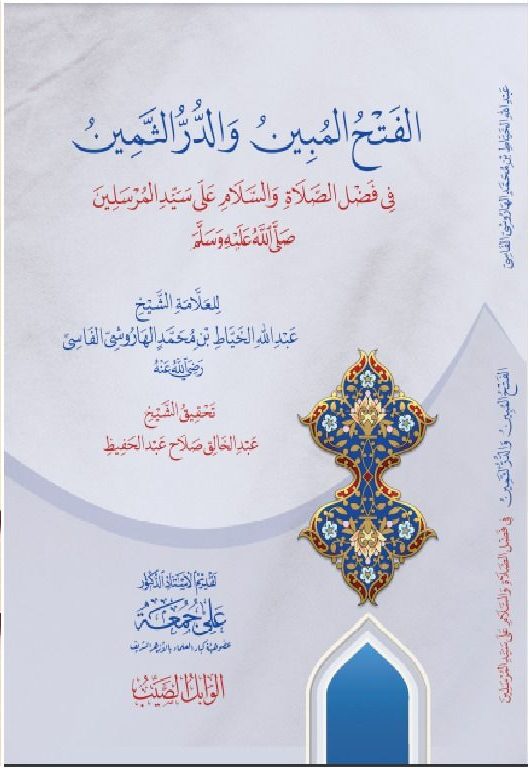 الفَتْحُ المُبِينُ وَالدُّرُّ الثَّمِينُ
فِي فَضْلِ الصَّلَاةِ وَالسَّلَامِ عَلَى سَيِّدِ المُرْسَلِينَ
صَلَّى اللَّهُ عَلَيْهِ وَسَلَّمَ
لِلعَلَّامَةِ الشَّيْخِ
عَبْدِ اللهِ الخَيَّاطِ بْنِ مُحَمَّدٍ الهَارُوشِيِّ الفَاسِيِّ
رَضِيَ اللهُ عَنْهُ
تَحْقِيقُ الشَّيْخِ
عَبْدِ الخَالِقِ صَلَاح عَبْدِ الحَفِيظِ
تقديم الأستاذ الدكتور
علي جمعة
عضو هيئة كبار العلماء بالأزهر الشريف
الوابل الصيب
عَبْدُ اللهِ الخَيَّاطِ بْنِ مُحَمَّدٍ الهَارُوشِيِّ الفَاسِيِّ
الفَتْحُ المُبِينُ وَالدُّرُّ الثَّمِينُ فِي فَضْلِ الصَّلَاةِ وَالسَّلَامِ عَلَى سَيِّدِ المُرْسَلِينَ